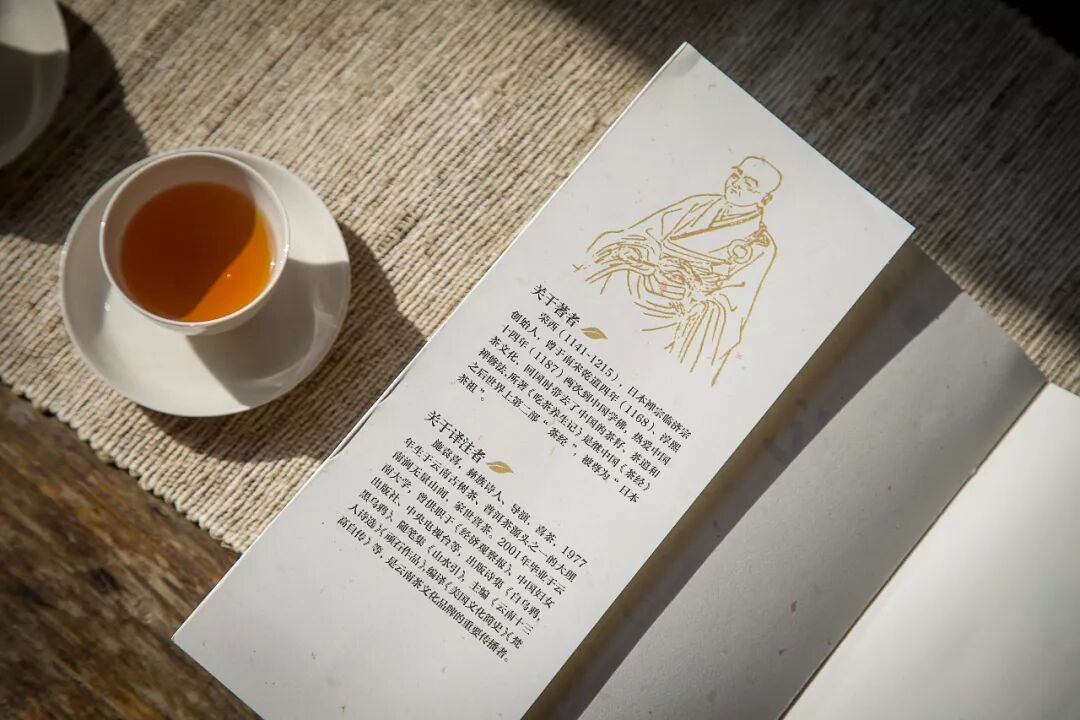 关于著者
荣西（1141-1215），日本禅宗临济宗
创始人，曾于南宋乾道四年（1168）、淳熙
十四年（1187）两次到中国学佛，热爱中国
茶文化，回国时带去了中国的茶籽、茶道和
禅修法，所著《吃茶养生记》是继中国《茶经》
之后世界上第二部“茶经”，被尊为“日本
茶祖”。
关于译注者
施袁喜，彝族诗人、导演，喜茶，1977
年生于云南古树茶、普洱茶源头之一的大理
南涧无量山间，家世营茶。2001年毕业于云
南大学，曾供职于《经济观察报》、中国妇女
出版社、中央电视台等，出版诗集《白乌鸦，
黑乌鸦》、随笔集《山水引》，主编《云南十三
人诗选》《顽石作品》，编译《美国文化简史》《梵
高自传》等，是云南茶文化品牌的重要传播者。